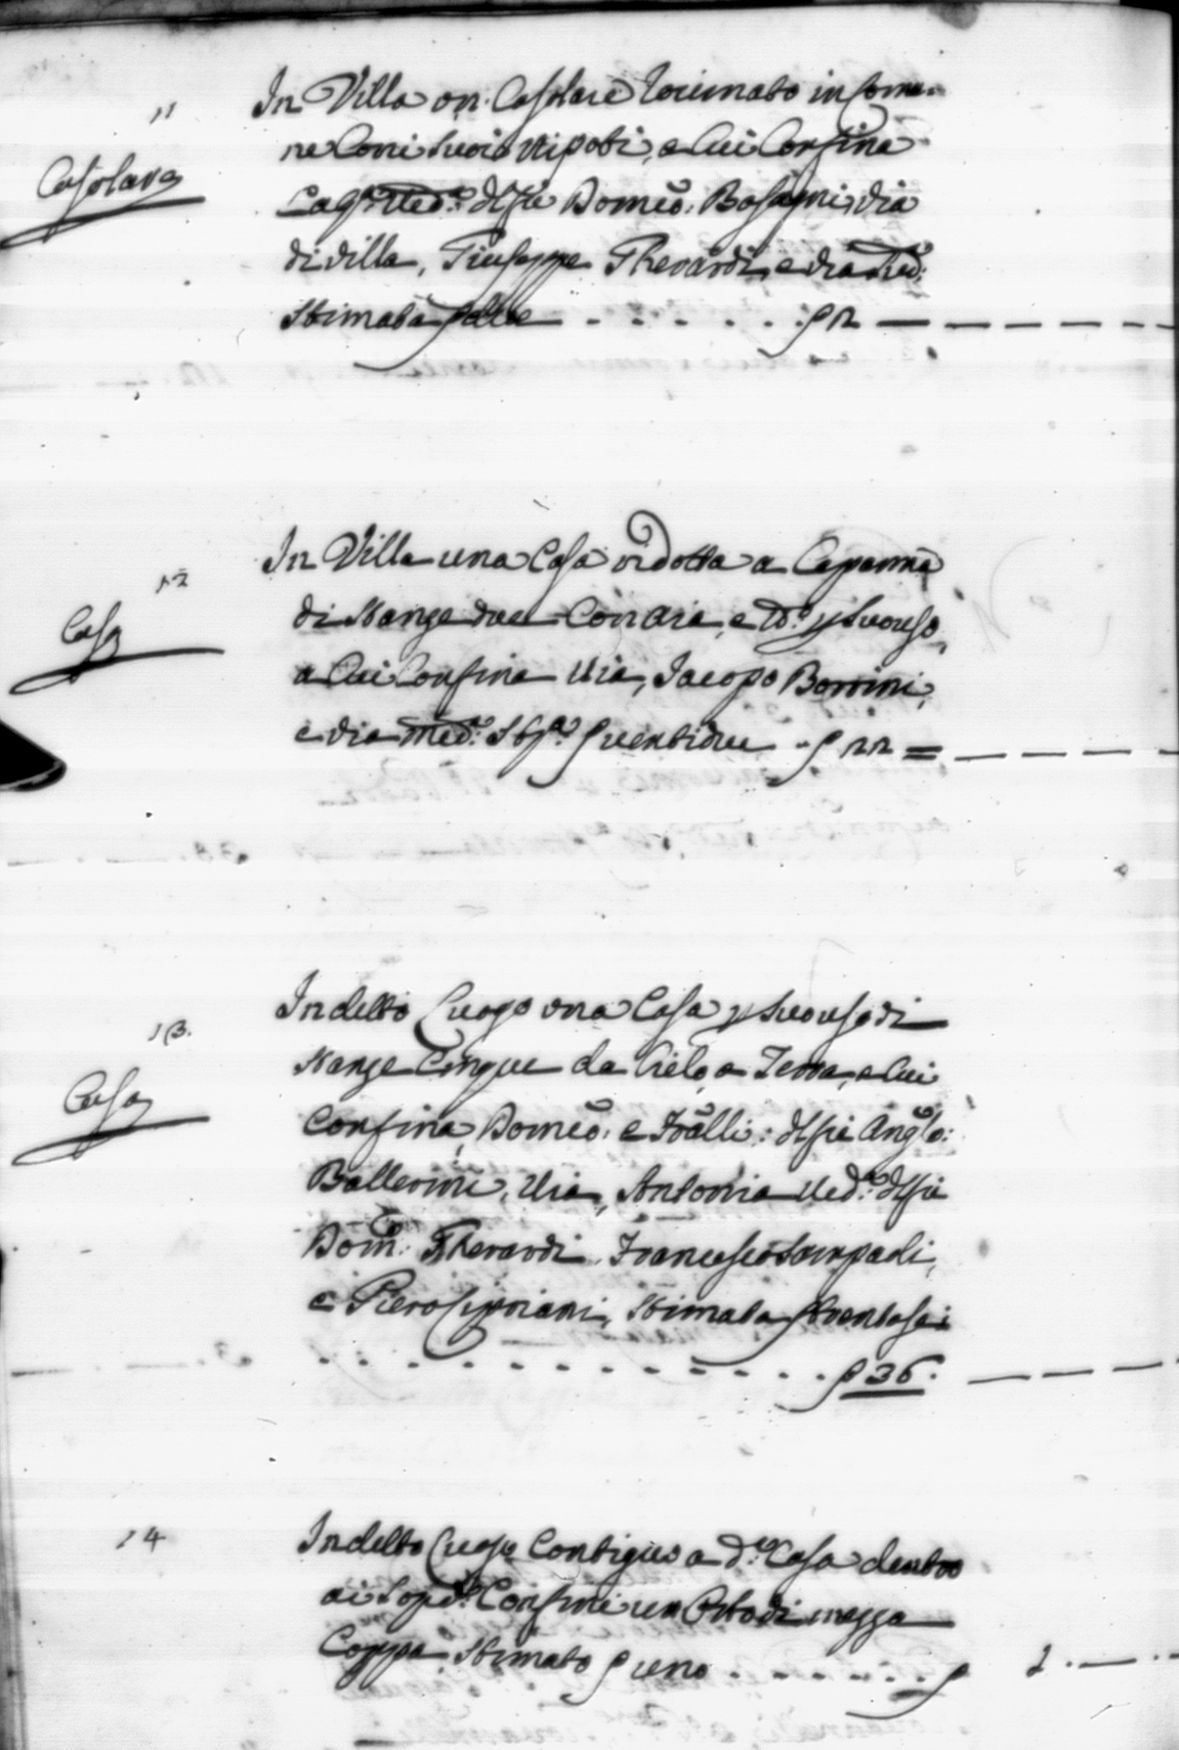 11
In Villa un Casolare rovinato in Comu-
ne Con i suoi Nipoti, a Cui Confina
Casolare
La q.m Ved.a d'Isp.e Domeco: Via
di Villa, Giuseppe Gherardi, e Via Med.a:
Stimata ‒ . . . . . . ‒
12
In Villa una Casa ridotta a Capanna
di Stanze due Con Aia, e p suo uso,
Casa
a Cui Confina Via, Jacopo Bonini,
e Via Med.a: St.a p ventidue . p 22 =
13.
In detto Luogo una Casa p suo uso di
Stanze Cinque da Cielo a Terra, a Cui
Casa
Confina Domeco: e Fralli: Anglo:
Ballerini, Via, Antonia Ved.a
Dom: Gherardi, Francesco
e Piero Cipriani, Stimata p trentasei
. . . . . . . . . . . p 36.
14
In detto Luogo Contiguo a d.a Casa dentro
ai Sopd. Confini un Orto di mezza
Coppa, Stimato p uno . . . . . . p 1. ‒